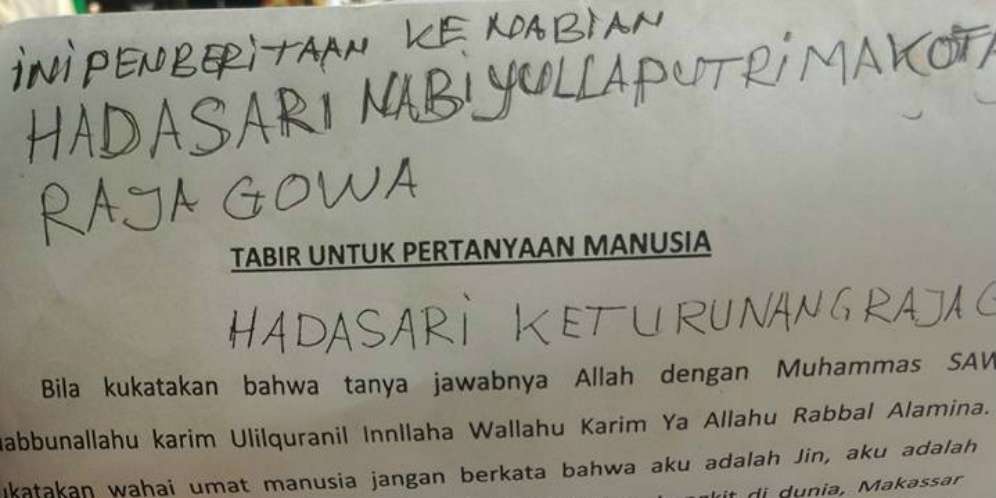 iNi PENBERiTAAN KE NABIAN
HADASARI NABI YULLAPUTRiMAKOTA
RAJA GOWA
TABIR UNTUK PERTANYAAN MANUSIA
HADASARi KETURUNANGRAJA G
Bila kukatakan bahwa tanya jawabnya Allah dengan Muhammas SAW
abbunallahu karim Ulilquranil Innllaha Wallahu Karim Ya Allahu Rabbal Alamina.
ukatakan wahai umat manusia jangan berkata bahwa aku adalah Jin, aku adalah
di dunia, Makassar